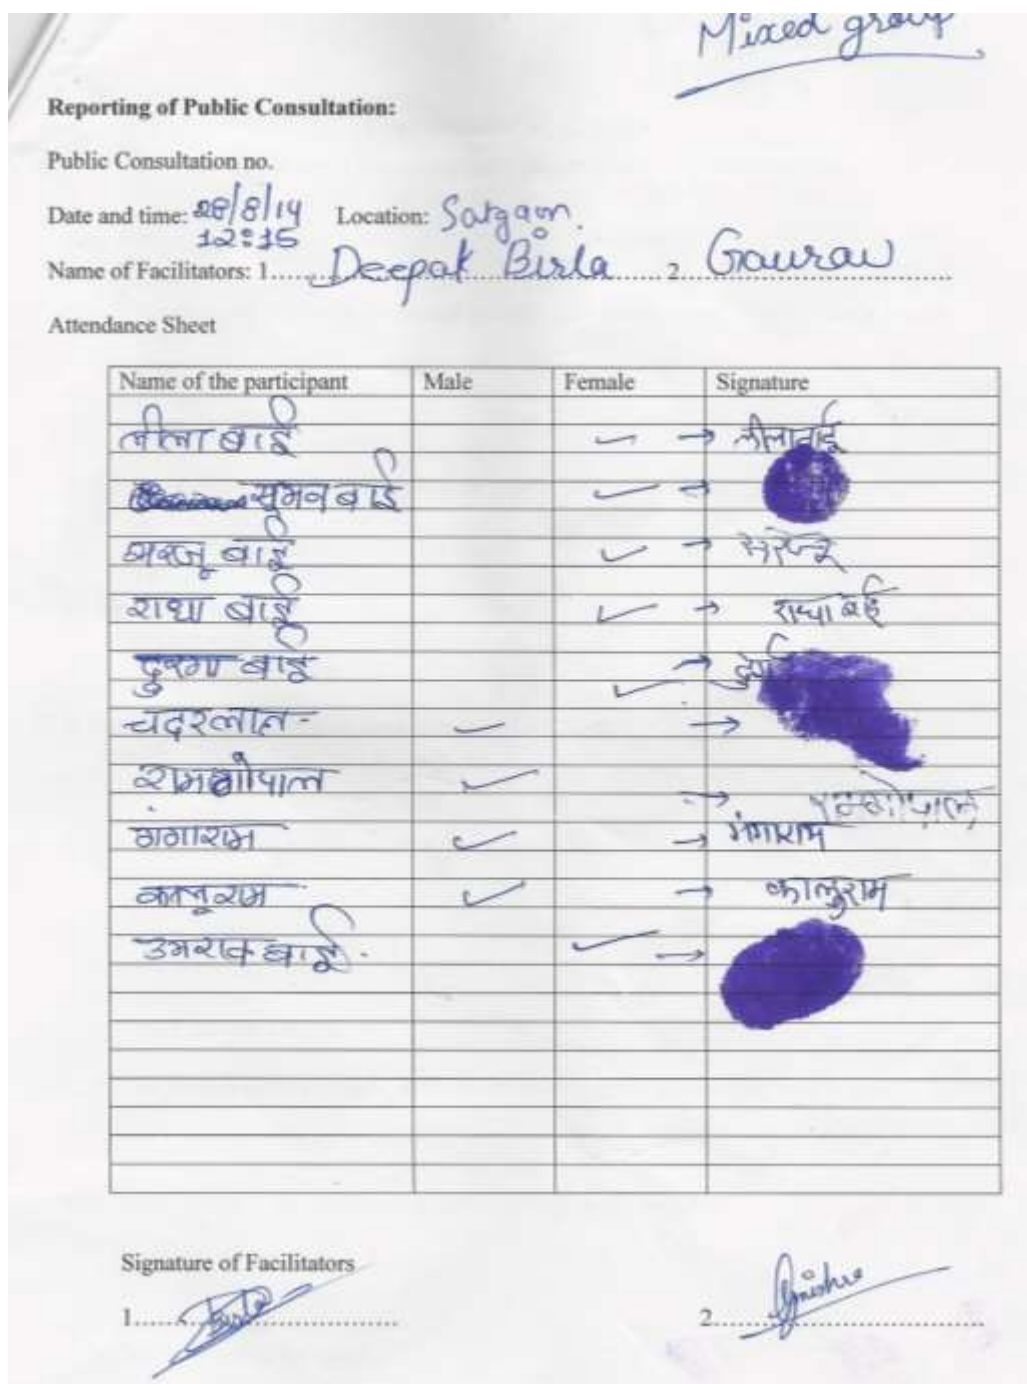 Mixed group
Reporting of Public Consultation:
Public Consultation no.
Date and time: 28/8/14 Location: Satgaon.
12:15
Name of Facilitators: 1...... Deepak Birla ...... 2. Gaurav
Attendance Sheet
Name of the participant Male Female Signature
लीला बाई ✓ → लीलाबाई
सुमन बाई ✓ →
सरजू बाई ✓ →
राधा बाई ✓ → राधा बई
दुरगा बाई ✓ →
चदरलाल - ✓ →
रामगोपाल ✓ → रामगोपाल
गंगाराम ✓ → गंगाराम
कालूराम ✓ → कालुराम
उमराव बाई. ✓ →
Signature of Facilitators
1. 2.